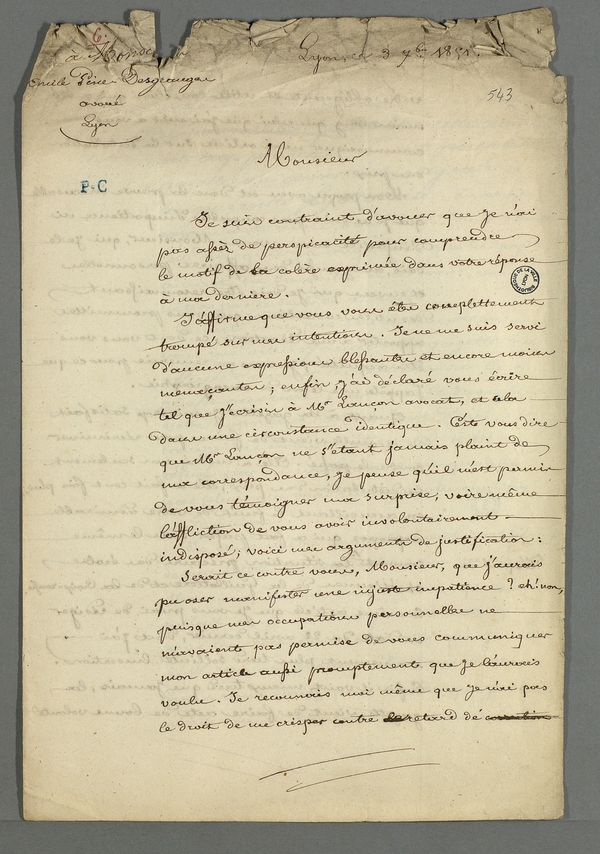 6
à Monsieur
Lyon, ce 3 7bre 1851.
Emile Père-Desgeorges
avoué
Lyon
543
Monsieur
P-C
Je suis contraint d'avouer que je n'ai
pas assèz de perspicacité pour comprendre
le motif de la colère exprimée dans votre réponse
à ma dernière.
J'affirme que vous vous êtes complettement
trompé sur mes intentions. Je ne me suis servi
d'aucunes expressions blessantes et encore moins
menaçantes; enfin, j'ai déclaré vous écrire
tel que j'écrivis à Mr Lançon avocat, et cela
dans une circonstance identique. C'est vous dire
que Mr Lançon ne s'étant jamais plaint de
ma correspondance, je pense qu'il m'est permis
de vous témoigner ma surprise, voire même
l'affliction de vous avoir involontairement
indisposé; voici mes arguments de justification:
Serait ce contre vous, Monsieur, que j'aurais
pu oser manifester une injuste impatience? eh! non,
puisque mes occupations personnelles ne
m'avaient pas permises de vous communiquer
mon article aussi promptement que je l'aurais
voulu. Je reconnais moi même que je n'ai pas
le droit de me crisper contre retard de